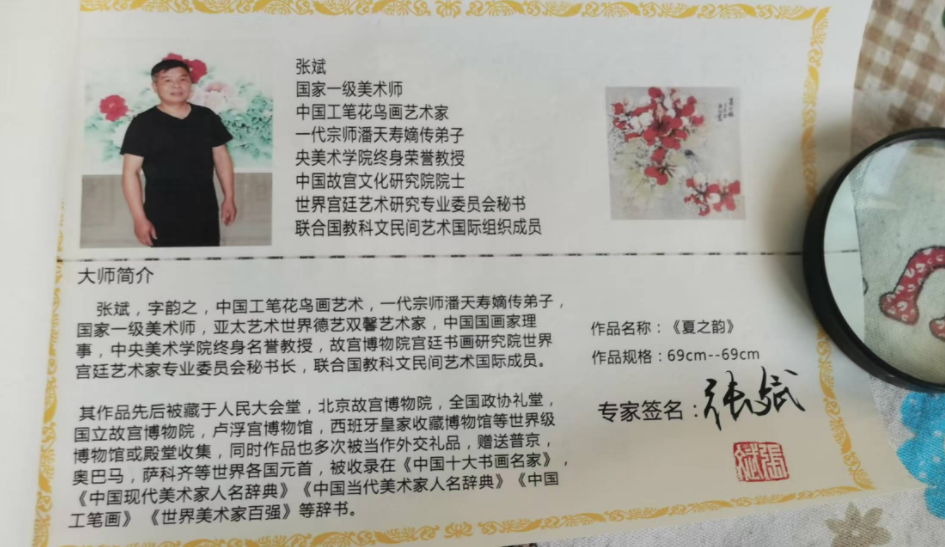 张斌
国家一级美术师
中国工笔花鸟画艺术家
一代宗师潘天寿嫡传弟子
央美术学院终身荣誉教授
中国故宫文化研究院院士
世界宫廷艺术研究专业委员会秘书
联合国教科文民间艺术国际组织成员
大师简介
张斌，字韵之，中国工笔花鸟画艺术，一代宗师潘天寿嫡传弟子，
国家一级美术师，亚太艺术世界德艺双馨艺术家，中国国画家理
事，中央美术学院终身名誉教授，故宫博物院宫廷书画研究院世界
宫廷艺术家专业委员会秘书长，联合国教科文民间艺术国际成员。
其作品先后被藏于人民大会堂，北京故宫博物院，全国政协礼堂，
国立故宫博物院，卢浮宫博物馆，西班牙皇家收藏博物馆等世界级
博物馆或殿堂收集，同时作品也多次被当作外交礼品，赠送普京，
奥巴马，萨科齐等世界各国元首，被收录在《中国十大书画名家》，
《中国现代美术家人名辞典》《中国当代美术家人名辞典》《中国
工笔画》《世界美术家百强》等辞书。
作品名称：《夏之韵》
作品规格：69cm--69cm
专家签名：张斌
张斌